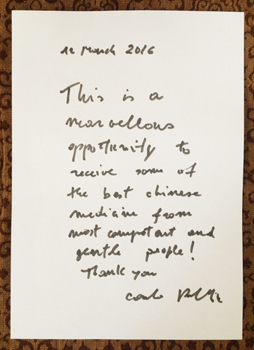 12 March 2016
This is a
marvellous
opportunity to
receive some of
the best chinese
medicine from
most competent and
gentle people!
Thank you